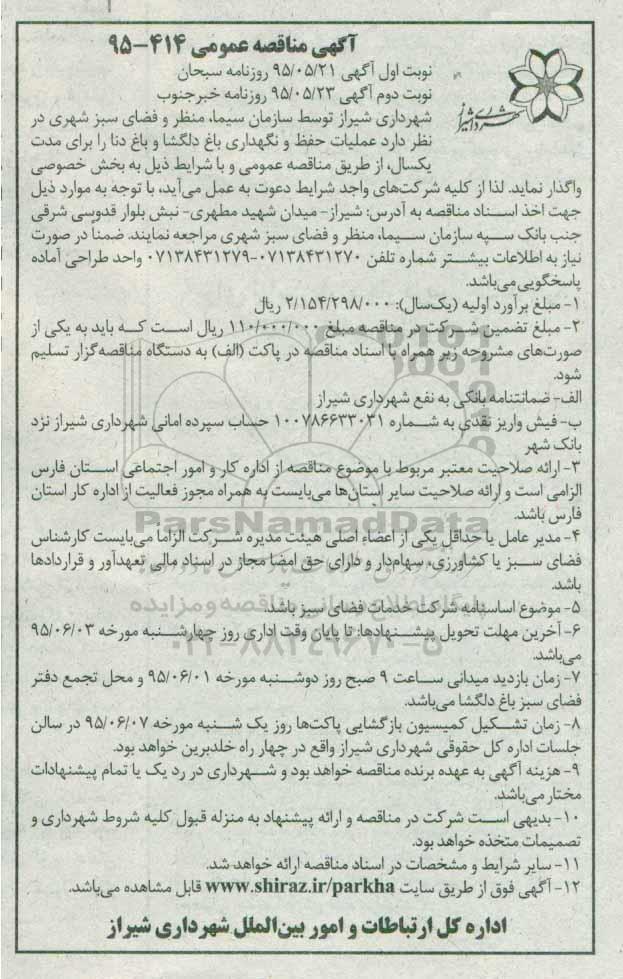 آگهی مناقصه عمومی ۴۱۴-۹۵
نوبت اول آگهی ۹۵/۰۵/۲۱ روزنامه سبحان
نوبت دوم آگهی ۹۵/۰۵/۲۳ روزنامه خبرجنوب
شهرداری شیراز
شهرداری شیراز توسط سازمان سیما، منظر و فضای سبز شهری در
نظر دارد عملیات حفظ و نگهداری باغ دلگشا و باغ دنا را برای مدت
یکسال، از طریق مناقصه عمومی و با شرایط ذیل به بخش خصوصی
واگذار نماید. لذا از کلیه شرکت‌های واجد شرایط دعوت به عمل می‌آید، با توجه به موارد ذیل
جهت اخذ اسناد مناقصه به آدرس: شیراز- میدان شهید مطهری- نبش بلوار قدوسی شرقی
جنب بانک سپه سازمان سیما، منظر و فضای سبز شهری مراجعه نمایند. ضمنا در صورت
نیاز به اطلاعات بیشتر شماره تلفن ۰۷۱۳۸۴۳۱۲۷۰-۰۷۱۳۸۴۳۱۲۷۹ واحد طراحی آماده
پاسخگویی می‌باشد.
۱- مبلغ برآورد اولیه (یک‌سال): ۲/۱۵۴/۲۹۸/۰۰۰ ریال
۲- مبلغ تضمین شرکت در مناقصه مبلغ ۱۱۰/۰۰۰/۰۰۰ ریال است که باید به یکی از
صورت‌های مشروحه زیر همراه با اسناد مناقصه در پاکت (الف) به دستگاه مناقصه‌گزار تسلیم
شود.
الف- ضمانتنامه بانکی به نفع شهرداری شیراز
ب- فیش واریز نقدی به شماره ۱۰۰۷۸۶۶۳۳۰۳۱ حساب سپرده امانی شهرداری شیراز نزد
بانک شهر
۳- ارائه صلاحیت معتبر مربوط با موضوع مناقصه از اداره کار و امور اجتماعی استان فارس
الزامی است و ارائه صلاحیت سایر استان‌ها می‌بایست به همراه مجوز فعالیت از اداره کار استان
فارس باشد.
ParsNamadData
۴- مدیر عامل یا حداقل یکی از اعضاء اصلی هیئت مدیره شرکت الزاما می‌بایست کارشناس
فضای سبز یا کشاورزی، سهام‌دار و دارای حق امضا مجاز در اسناد مالی تعهدآور و قراردادها
باشد.
پایگاه اطلاع رسانی مناقصه و مزایده
۵- موضوع اساسنامه شرکت خدمات فضای سبز باشد.
۶- آخرین مهلت تحویل پیشنهادها: تا پایان وقت اداری روز چهارشنبه مورخه ۹۵/۰۶/۰۳
می‌باشد.
۰۲۱-۸۸۳۴۹۶۷۰-۵
۷- زمان بازدید میدانی ساعت ۹ صبح روز دوشنبه مورخه ۹۵/۰۶/۰۱ و محل تجمع دفتر
فضای سبز باغ دلگشا می‌باشد.
۸- زمان تشکیل کمیسیون بازگشایی پاکت‌ها روز یک شنبه مورخه ۹۵/۰۶/۰۷ در سالن
جلسات اداره کل حقوقی شهرداری شیراز واقع در چهار راه خلدبرین خواهد بود.
۹- هزینه آگهی به عهده برنده مناقصه خواهد بود و شهرداری در رد یک یا تمام پیشنهادات
مختار می‌باشد.
۱۰- بدیهی است شرکت در مناقصه و ارائه پیشنهاد به منزله قبول کلیه شروط شهرداری و
تصمیمات متخذه خواهد بود.
۱۱- سایر شرایط و مشخصات در اسناد مناقصه ارائه خواهد شد.
۱۲- آگهی فوق از طریق سایت www.shiraz.ir/parkha قابل مشاهده می‌باشد.
اداره کل ارتباطات و امور بین‌الملل شهرداری شیراز